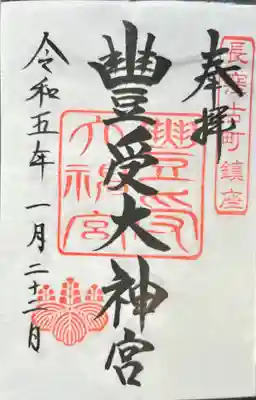 長窪古町鎮座
奉拝
豊受大神宮
豊受大神宮
令和五年一月二十二日